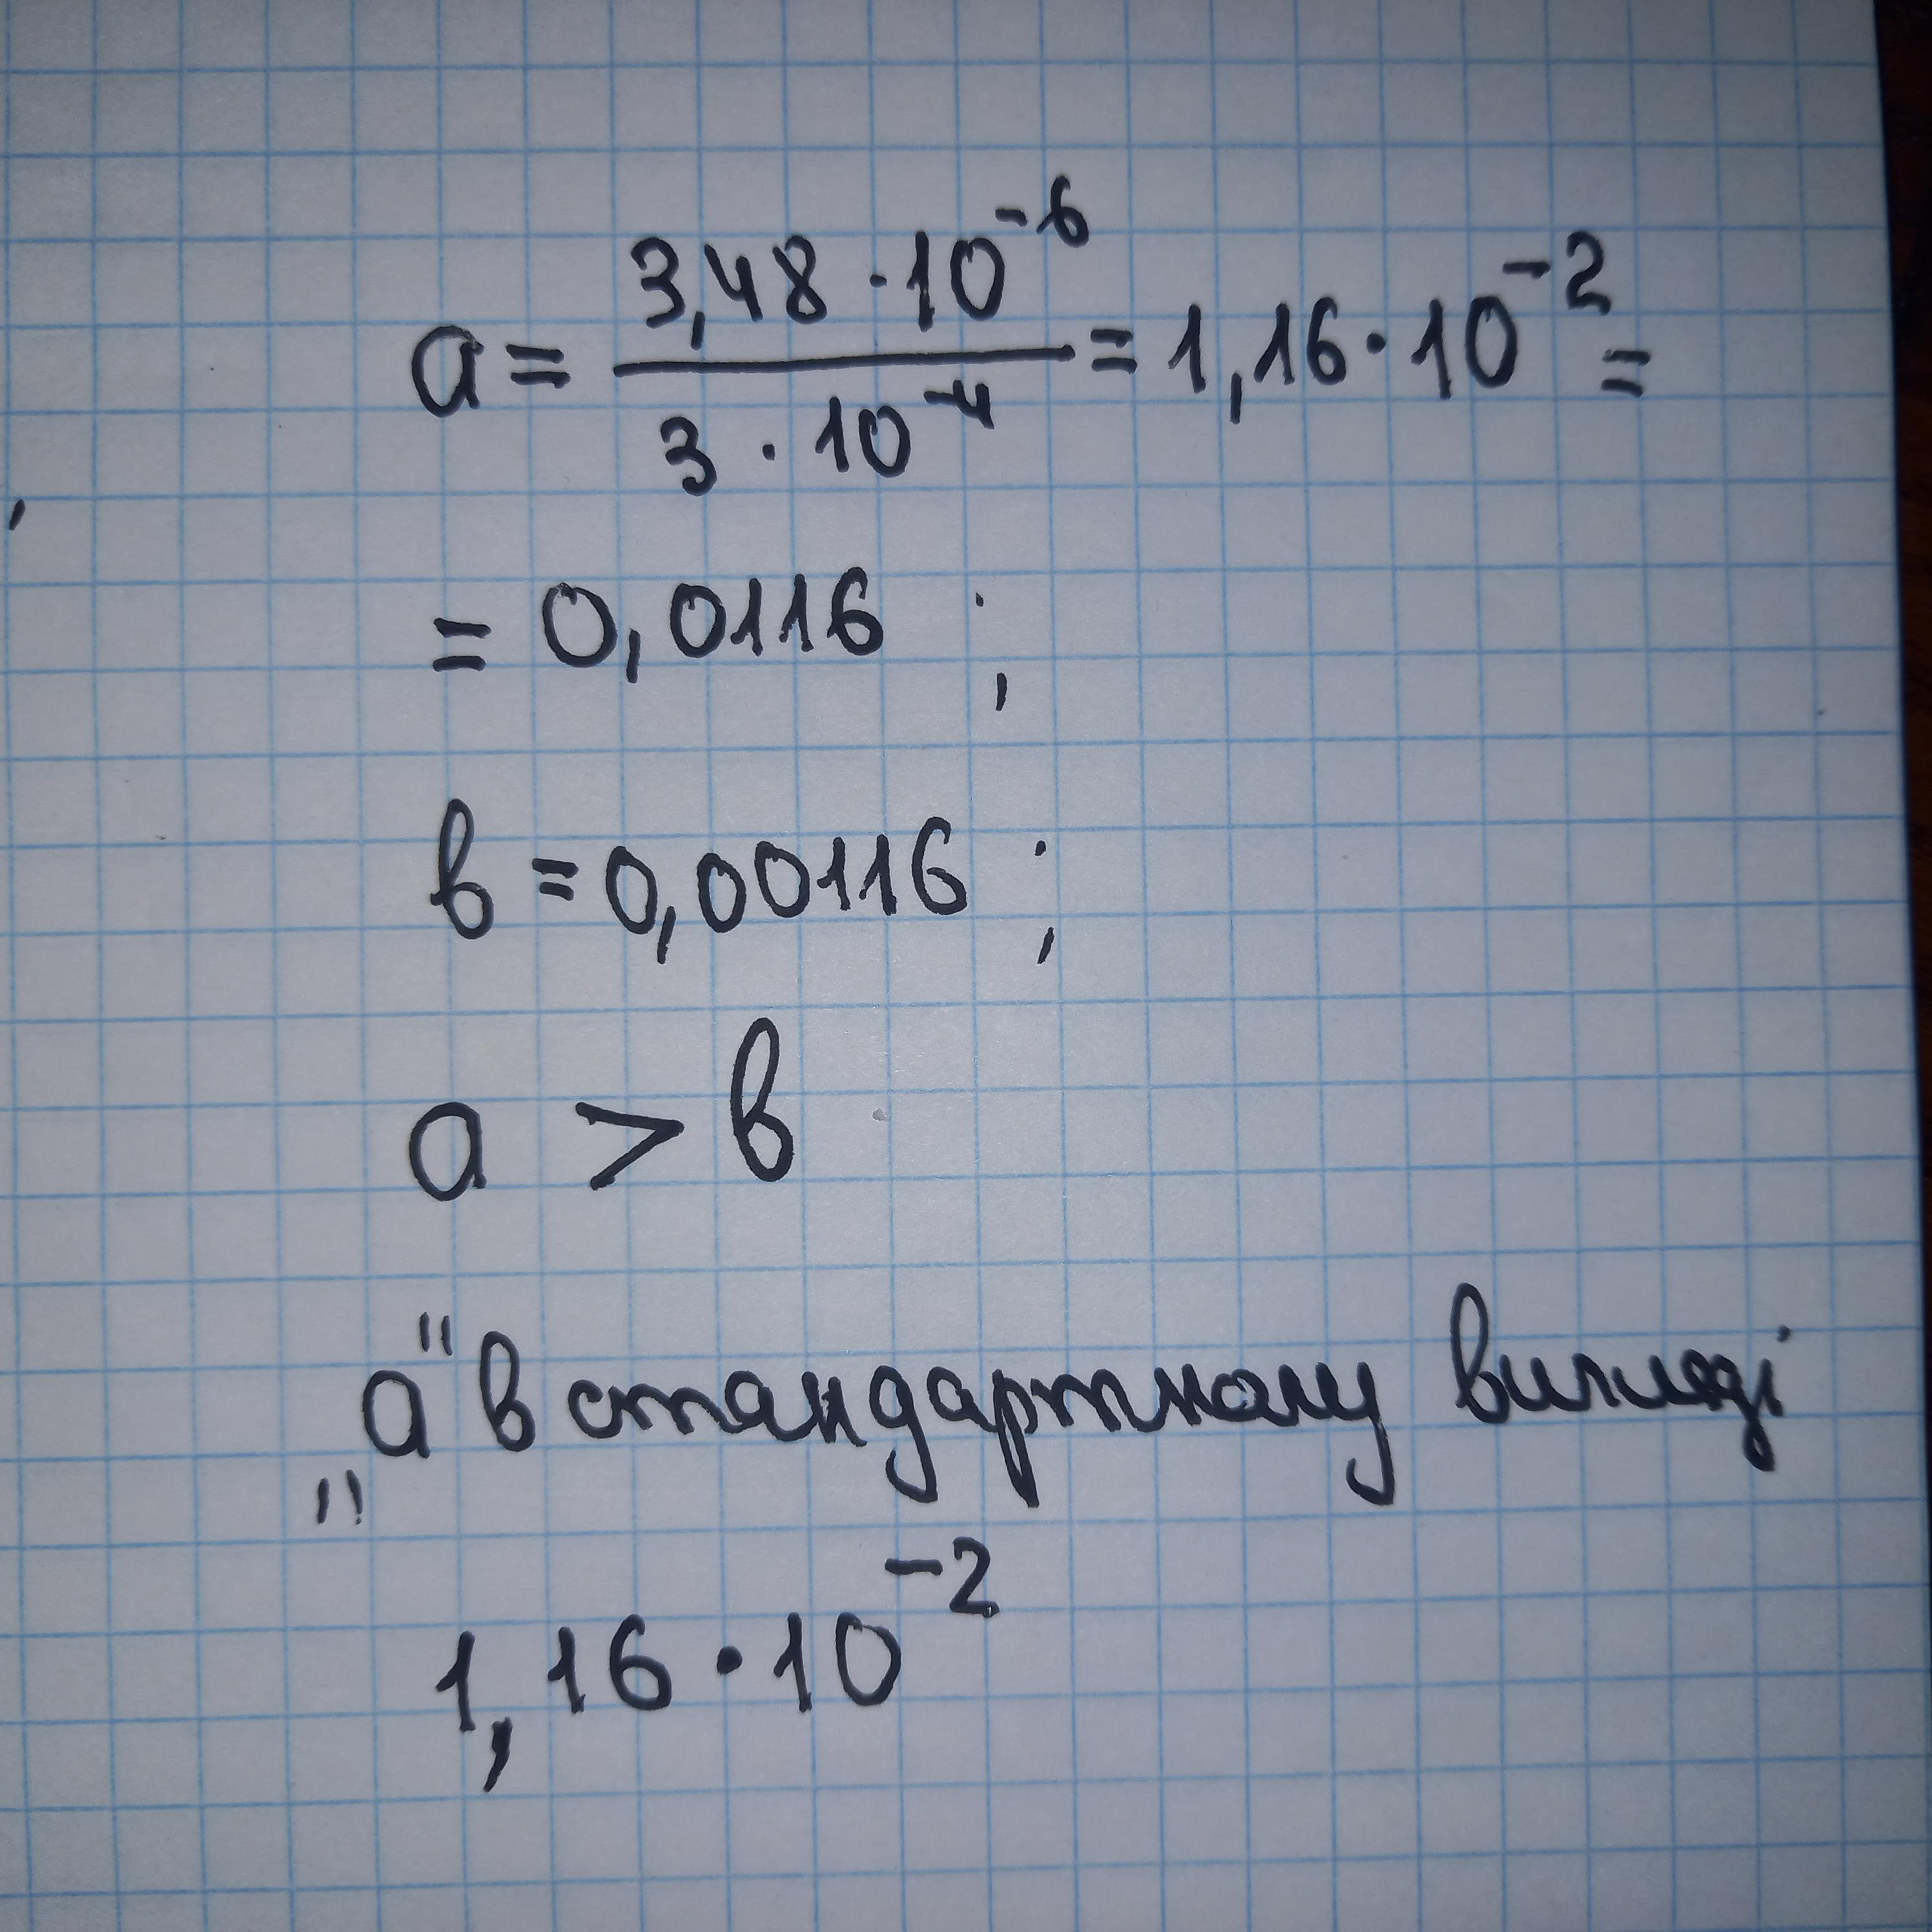 a = 3,48 · 10⁻⁶ / 3 · 10⁻⁴ = 1,16 · 10⁻² =
= 0,0116 ;
в = 0,00116 ;
a > в
„a" в стандартному вигляді
1,16 · 10⁻²